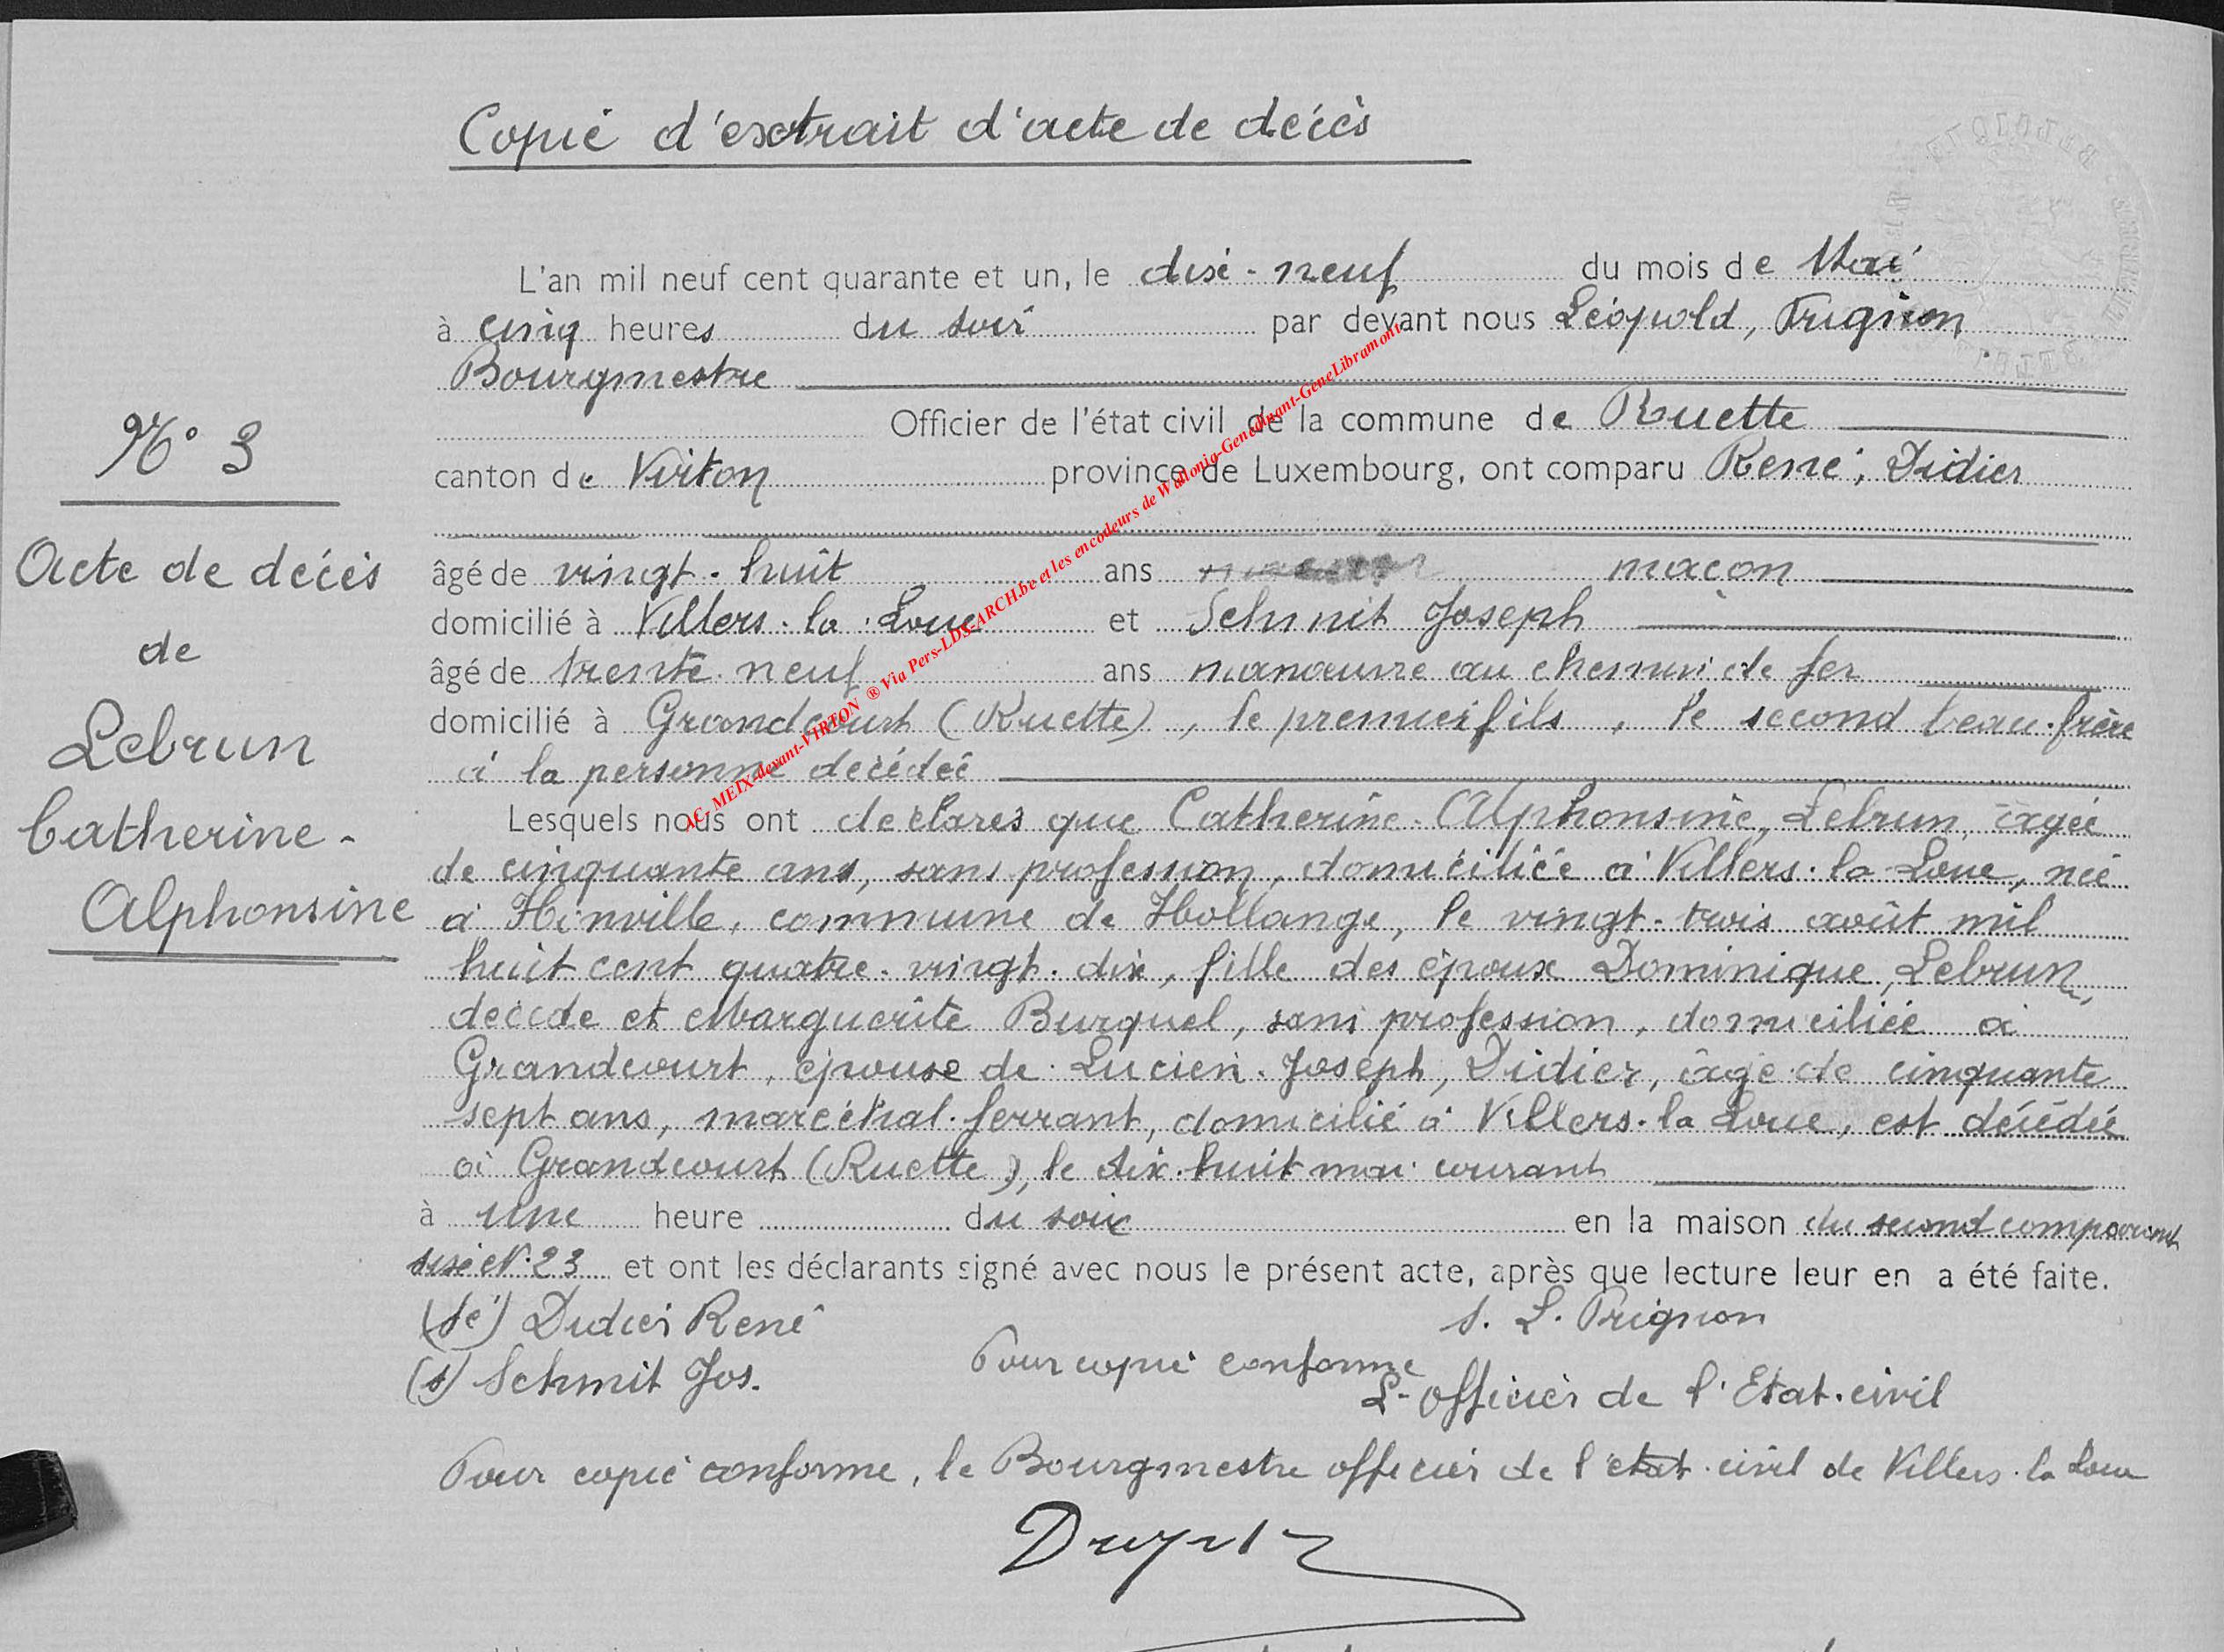 Copie d'extrait d'acte de décès
L'an mil neuf cent quarante et un, le dix-neuf du mois de Mai
à cinq heures du soir par devant nous Léopold, Prignon
Bourgmestre
Officier de l'état civil de la commune de Ruette
canton de Virton province de Luxembourg, ont comparu René, Didier
âgé de vingt-huit ans maçon
domicilié à Villers-la-Loue et Schmit Joseph
âgé de trente-neuf ans manœuvre au chemin de fer
domicilié à Grandcourt (Ruette), le premier fils, le second beau-frère
à la personne décédée
Lesquels nous ont déclarés que Catherine-Alphonsine, Lebrun, âgée
de cinquante ans, sans profession, domiciliée à Villers-la-Loue, née
à Hinville, commune de Hollange, le vingt-trois août mil
huit cent quatre-vingt-dix, fille des époux Dominique, Lebrun,
décédé et Marguerite Burquel, sans profession, domiciliée à
Grandcourt, épouse de Lucien-Joseph, Didier, âgé de cinquante
sept ans, maréchal-ferrant, domicilié à Villers-la-Loue, est décédée
à Grandcourt (Ruette), le dix-huit mai courant
à une heure du soir en la maison du second comparant
sise N°23 et ont les déclarants signé avec nous le présent acte, après que lecture leur en a été faite.
(sé) Didier René
s. L. Prignon
(s) Schmit Jos.
Pour copie conforme
L'officier de l'Etat-civil
Pour copie conforme, le Bourgmestre officier de l'état-civil de Villers-la-Loue
N° 3
Acte de décès
de
Lebrun
Catherine-
Alphonsine
AC- MEIX-devant-VIRTON ® Via Pers-LDS-ARCH.be et les encodeurs de Wallonia-Genedinant-GeneLibramont